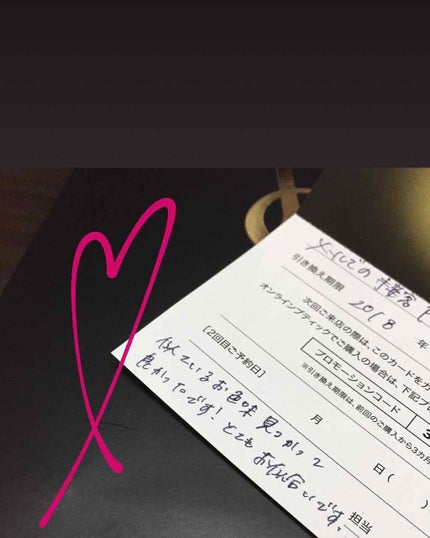 引き換え期限 2018 年
次回ご来店の際は、このカードをカ
オンラインブティックでご購入の場合は、下記プロ
プロモーションコード 3
※引き換え期限は、前回のご購入から3カ月
[2回目ご予約日]
月 日( )
担当
似ているお色味見つかって
良かったです!とても
お似合いです。